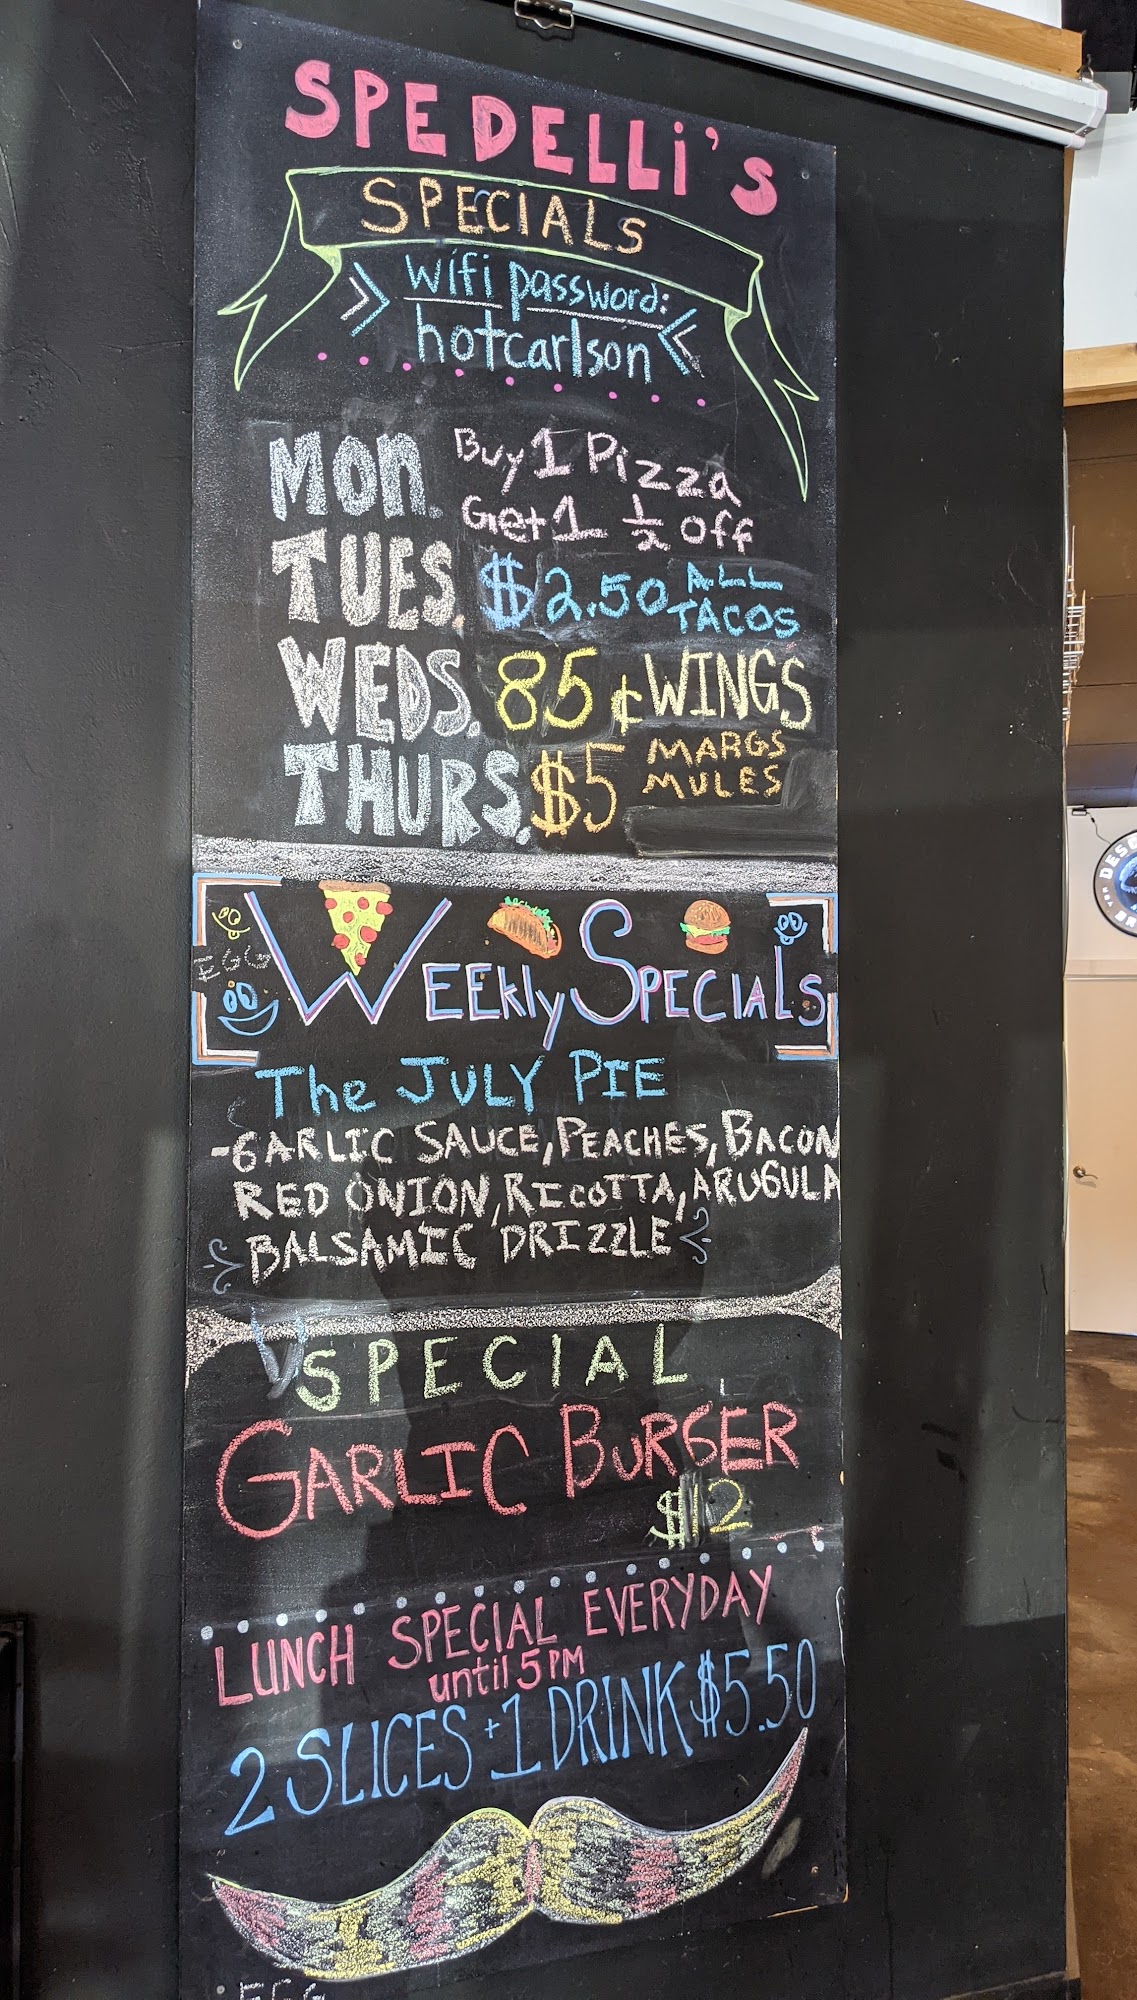 SPEDELLi's
SPECIALS
wifi password:
hotcarlson
MON. Buy 1 Pizza
Get 1 ½ off
TUES. $2.50 ALL
TACOS
WEDS. 85¢ WINGS
THURS. $5 MARGS
MULES
EGG
WEEKly SPECIALS
The JULY PIE
-GARLIC SAUCE, PEACHES, BACON
RED ONION, RICOTTA, ARUGULA
BALSAMIC DRIZZLE
SPECIAL
GARLIC BURGER
$12
LUNCH SPECIAL EVERYDAY
until 5 PM
2 SLICES + 1 DRINK $5.50